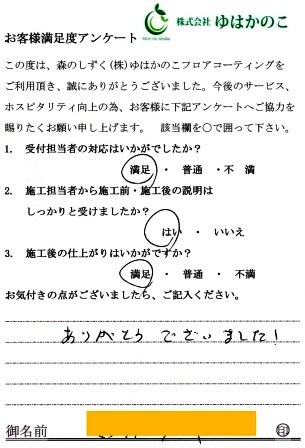 株式会社 ゆはかのこ
お客様満足度アンケート
この度は、森のしずく(株)ゆはかのこフロアコーティングを
ご利用頂き、誠にありがとうございました。今後のサービス、
ホスピタリティ向上の為、お客様に下記アンケートへご協力を
賜りたくお願い申し上げます。 該当欄を○で囲って下さい。
1. 受付担当者の対応はいかがでしたか?
満足 ・ 普通 ・不 満
2. 施工担当者から施工前・施工後の説明は
しっかりと受けましたか?
はい ・ いいえ
3. 施工後の仕上がりはいかがですか?
満足 ・ 普通 ・ 不満
お気付きの点がございましたら、ご記入ください。
ありがとうございました!
御名前 印